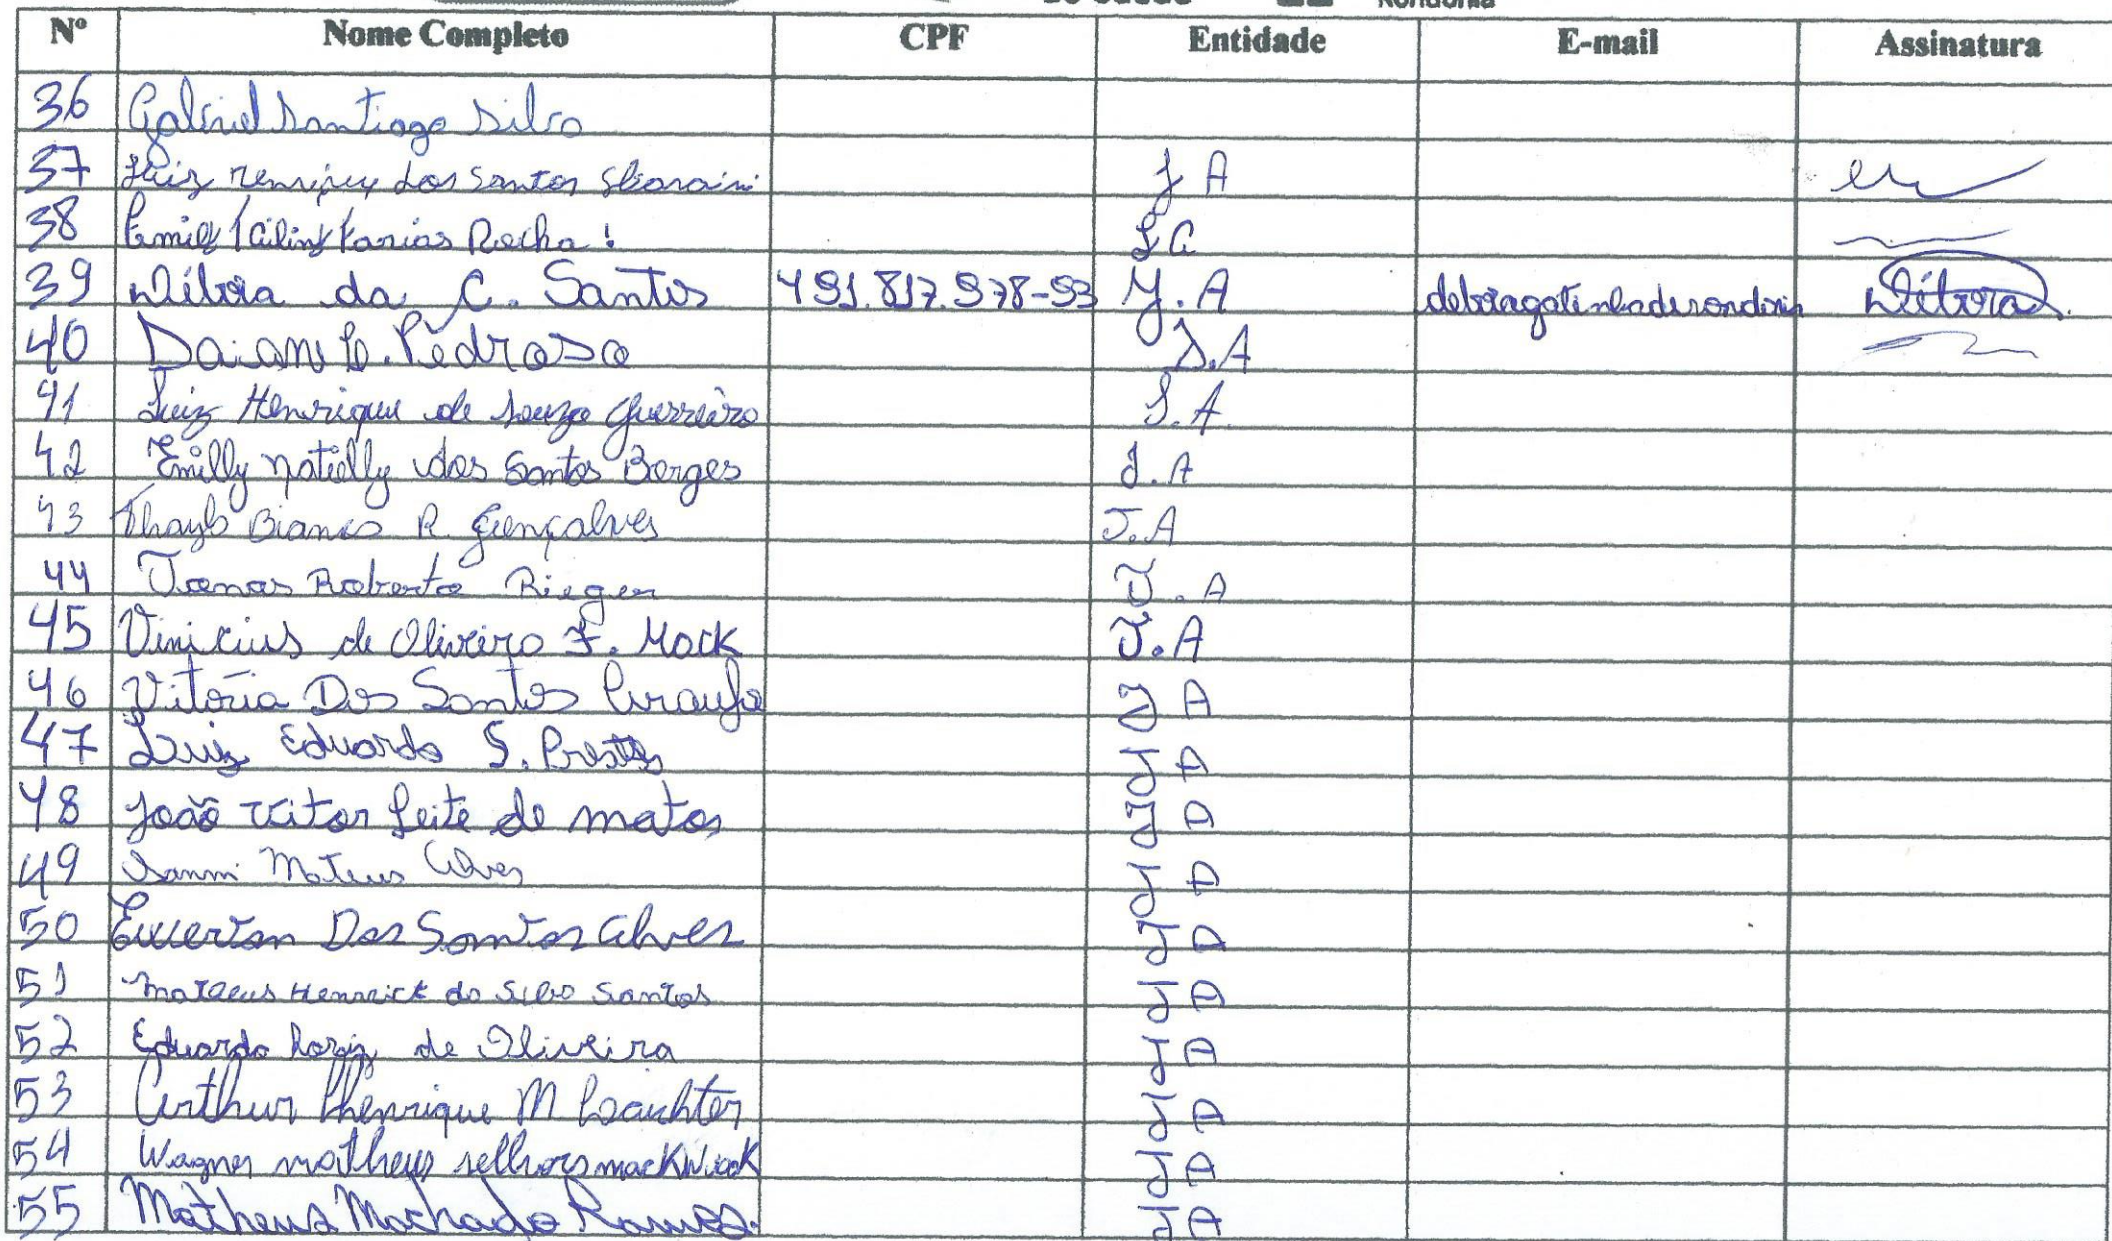 Rondônia
Nº Nome Completo CPF Entidade E-mail Assinatura
36 Gabriel Santiago Silva
37 Luiz Henrique dos Santos J A
38 Emily Farias Rocha! J A
39 Débora da C. Santos J.A Débora
40 Daiane Pedroso J.A
41 Luiz Henrique de Souza Guerreiro J.A
42 Emilly Natielly dos Santos Borges J.A
43 Bianca R. Gonçalves J.A
44 Roberto Rieger J.A
45 Vinicius de Oliveira F. Mock J.A
46 Vitória Dos Santos Araujo J A
47 Luiz Eduardo S. Prestes J A
48 João Vitor Leite de matos J A
49 Mateus Alves J A
50 Ewerton Dos Santos Alves J A
51 Mateus Henrick da Silva Santos J A
52 Eduardo Loriz de Oliveira J A
53 Arthur Henrique M J A
54 Wagner matheus J A
55 Matheus Machado Ramos. J A